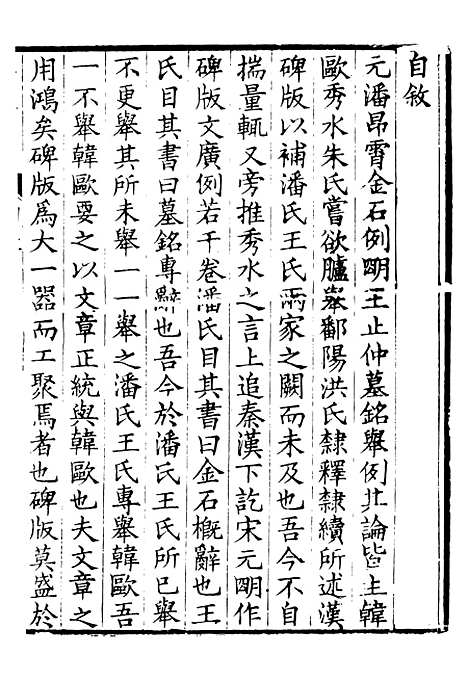 自敘
元潘昂霄金石例明王止仲墓銘舉例其論皆主韓
歐秀水朱氏嘗欲臚舉鄱陽洪氏隸釋隸續所述漢
碑版以補潘氏王氏兩家之闕而未及也吾今不自
揣量輒又旁推秀水之言上追秦漢下訖宋元明作
碑版文廣例若干卷潘氏目其書曰金石槪辭也王
氏目其書曰墓銘專辭也吾今於潘氏王氏所已舉
不更舉其所未舉一一舉之潘氏王氏專舉韓歐吾
一不舉韓歐要之以文章正統與韓歐也夫文章之
用鴻矣碑版爲大一器而工聚焉者也碑版莫盛於